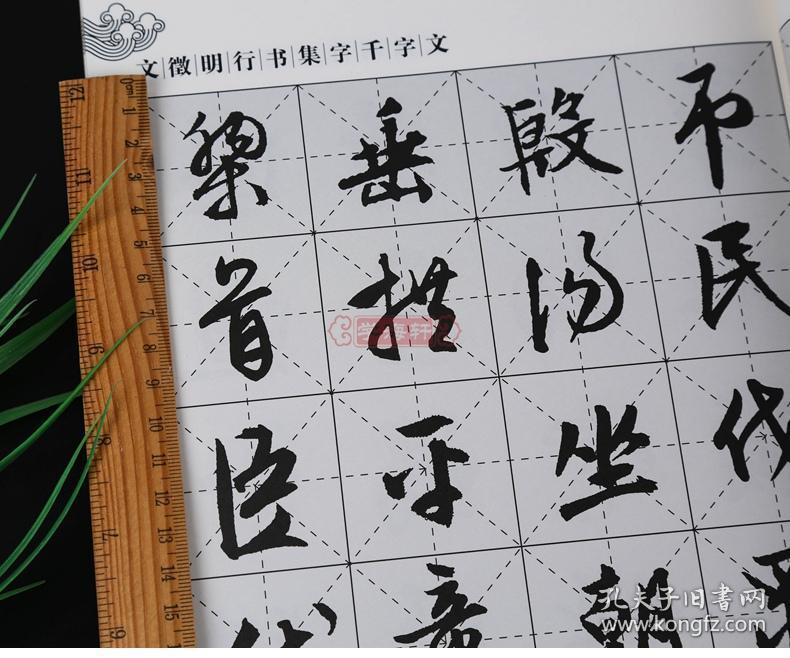 文徵明行书集字千字文
吊民伐
殷湯坐朝
垂拱平章
黎首臣伏
學海軒
孔夫子旧书网
www.kongfz.com
0cm 1 2 3 4 5 6 7 8 9 10 11 12 13 14 15
12 11 10 9 8 7 6